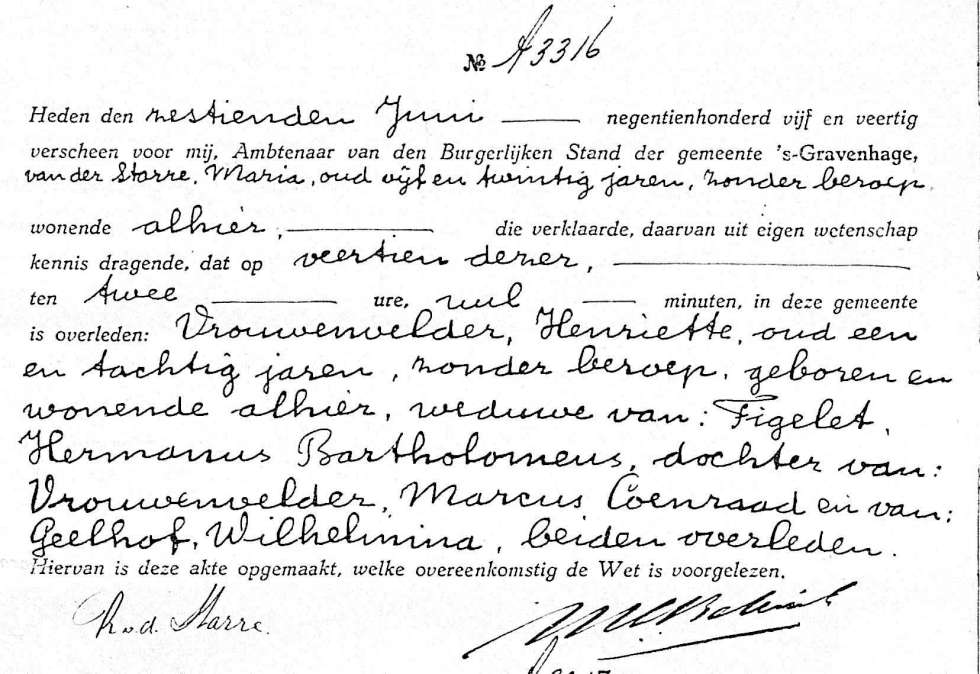 № A3316
Heden den zestienden Juni negentienhonderd vijf en veertig
verscheen voor mij, Ambtenaar van den Burgerlijken Stand der gemeente 's-Gravenhage,
van der Starre, Maria, oud vijf en twintig jaren, zonder beroep,
wonende alhier, die verklaarde, daarvan uit eigen wetenschap
kennis dragende, dat op veertien dezer,
ten twee ure, nul minuten, in deze gemeente
is overleden: Vrouwenvelder, Henriette, oud een
en tachtig jaren, zonder beroep, geboren en
wonende alhier, weduwe van: Figelet,
Hermanus Bartholomeus, dochter van:
Vrouwenvelder, Marcus Coenraad en van:
Geelhof, Wilhelmina, beiden overleden.
Hiervan is deze akte opgemaakt, welke overeenkomstig de Wet is voorgelezen.
v.d. Starre.